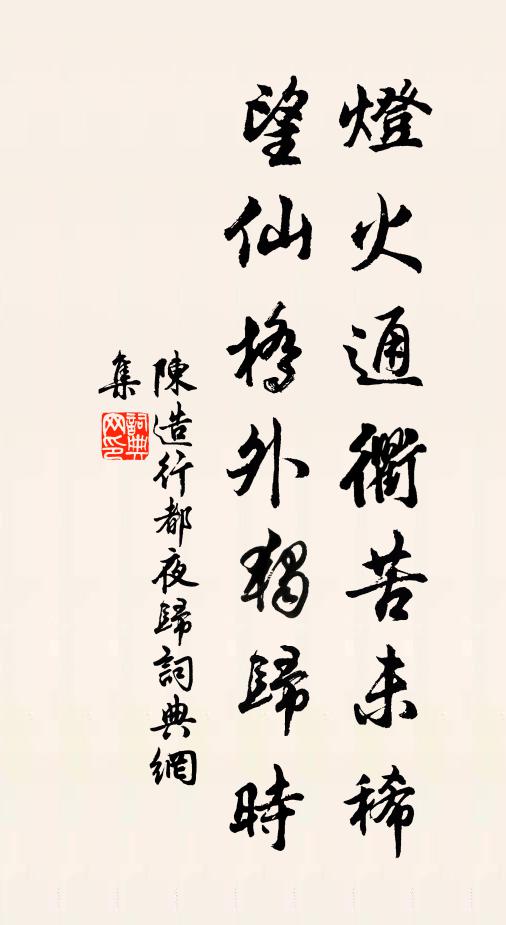 燈火通衢苦未稀
望仙橋外獨歸時
陳造行都夜歸詞典網
集
詞典網印